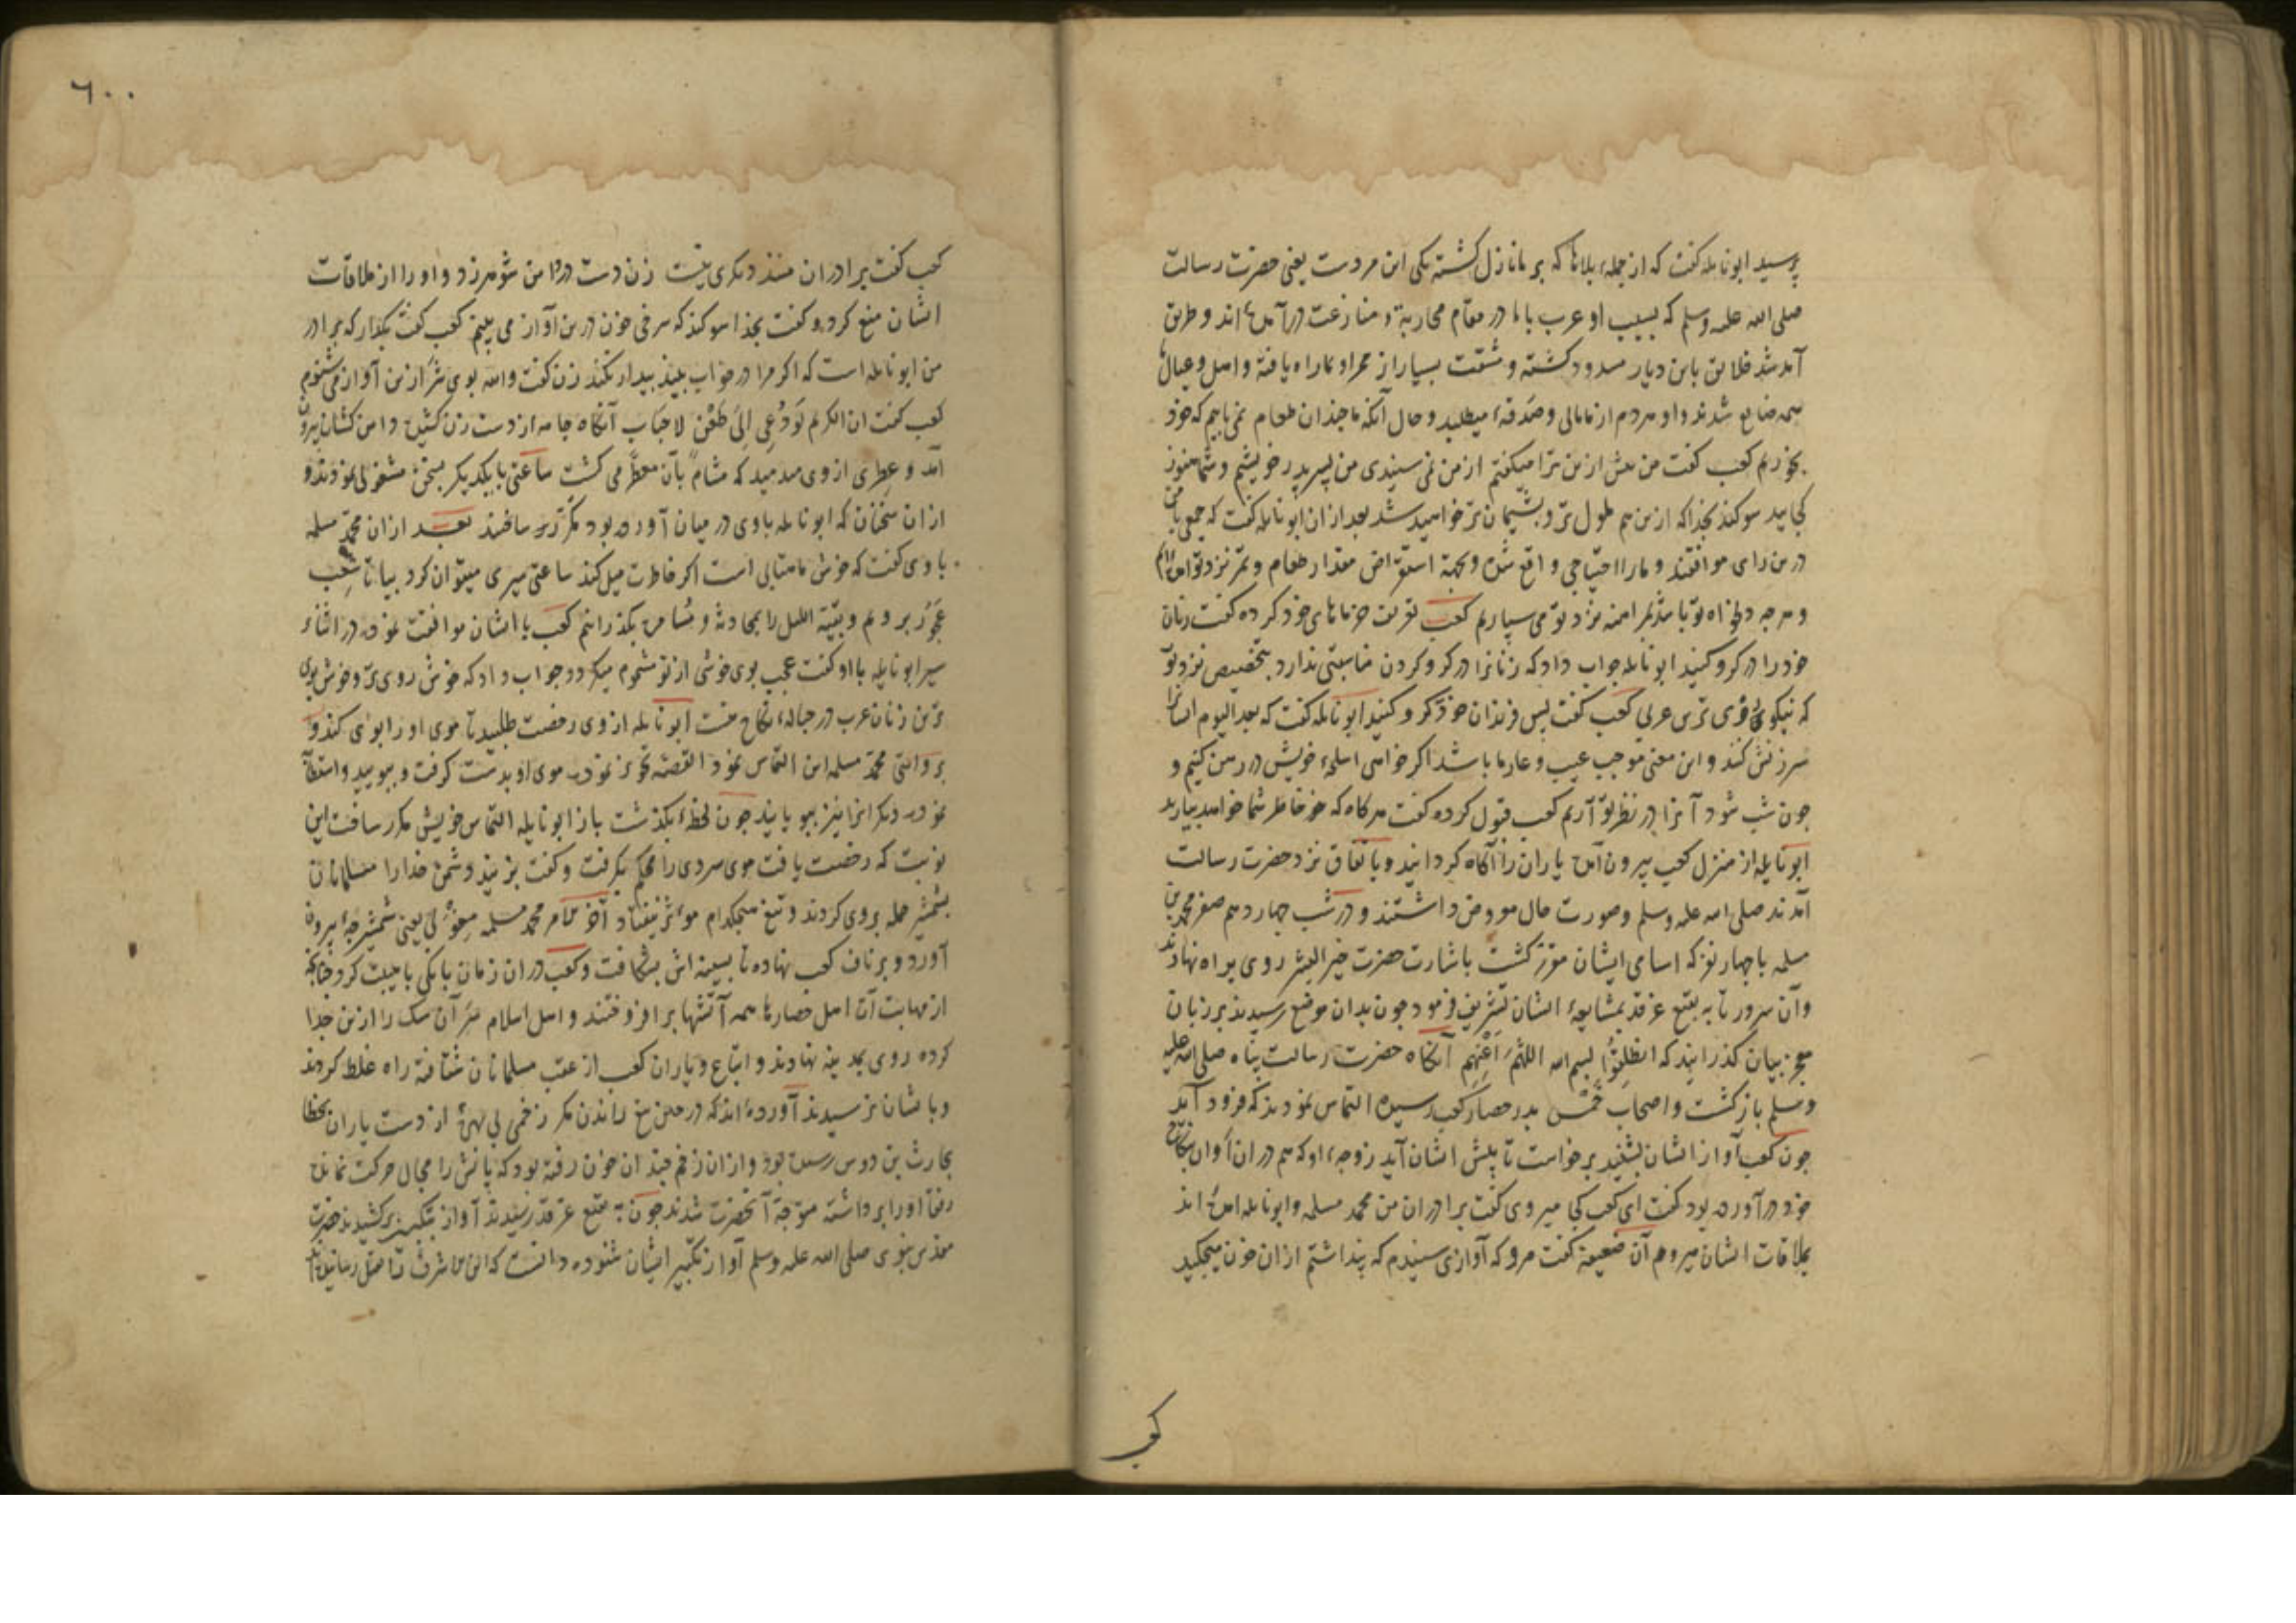 پرسید ابونایله گفت که از جمله بلاها که بر ما نازل کشته یکی این مردست یعنی حضرت رسالت
صلی الله علیه وسلم که بسبب او عرب با ما در مقام محاربة و منازعت درآمده اند و طریق
آمد شد خلایق باین دیار مسدود کشته و مشقت بسیار از ممر او بما راه یافته و اهل و عیال ما
همه ضایع شدند و او مردم از ما مالی و صدقه میطلبد و حال آنکه ما چندان طعام نمی یابیم که خود
بخوریم کعب کفت من پیش ازین ترا میکفتم از من نمی شنیدی من پسر پدر خویشم و شما هنوز
کجایید سوکند بخدا که ازین هم ملول تر و پشیمان تر خواهید شد بعد ازان ابونایله کفت که جمعی با من
درین رای موافقند و ما را احتیاجی واقع شده و بجهة استقراض مقدار طعام و تمر نزد تو آمده ایم
و هرچه دلخواه تو باشد نزد تو می سپاریم کعب تعریف خرماهای خود کرده کفت زنان
خود را در کرو کنید ابونایله جواب داد که زنانرا در کرو کردن مناسبتی ندارد بتخصیص نزد تو
که نیکوروی ترین عربی کعب کفت پس فرزندان خود کرو کنید ابونایله کفت که بعد الیوم ایشانرا
سرزنش کنند و این معنی موجب عیب و عار ما باشد اکر خواهی اسلحه خویش در رهن کنیم و
چون شب شود آنرا در نظر تو آریم کعب قبول کرده کفت هرکاه که خاطر شما خواهد بیارید
ابونایله از منزل کعب بیرون آمده یارانرا آکاه کردانید و باتفاق نزد حضرت رسالت
آمدند صلی الله علیه وسلم وصورت حال معروض داشتند و در شب چهاردهم صفر محمد بن
مسلمه با چهار نفر که اسامی ایشان مقرر کشت باشارت حضرت خیر البشر روی براه نهادند
وآن سرور تا به بقیع غرقد بمشایعه ایشان تشریف فرمود چون بدان موضع رسیدند بر زبان
معجز بیان کذرانید که انطلقوا بسم الله اللهم اعنهم آنکاه حضرت رسالت پناه صلی الله علیه
وسلم بازکشت و اصحاب خمس بدر حصار کعب رسیده التماس نمودند که فرود آید
چون کعب آواز ایشان بشنید برخواست تا پیش ایشان آید زوجه او که هم دران اوان بنکاح
خود درآورده بود کفت ای کعب کجا میروی کفت برادران من محمد مسلمه و ابونایله آمده اند
بملاقات ایشان میروم آن ضعیفه کفت مرو که آوازی شنیدم که پنداشتم ازان خون میچکید
کعب
٦٠٠
کعب کفت برادران منند دیکری نیست زن دست در دامن شوهر زد و او را از ملاقات
ایشان منع کرد و کفت بخدا سوکند که سرخی خون درین آواز می بینم کعب کفت بکذار که برادر
من ابونایله است که اکر مرا در خواب بیند بیدار نکند زن کفت والله بوی شر ازین آواز می شنوم
کعب کفت ان الکریم لو دعی الی طعن لاجاب آنکاه جامه از دست زن کشیده دامن کشان بیرون
آمد و عطری از وی میدمید که مشام بآن معطر می کشت ساعتی با یکدیکر بسخن مشغولی نمودند و
ازان سخنان که ابونایله با وی در میان آورده بود مکرر ساختند بعد ازان محمد مسلمه
با وی کفت که خوش ماهتابی است اکر خاطرت میل کند ساعتی سیری میتوان کرد بیا تا شعب
عجوز برویم و بقیة اللیل را بمحادثه و مسامره بکذرانیم کعب با ایشان موافقت نموده در اثناء
سیر ابونایله با او کفت عجب بوی خوشی از تو مشموم میکردد جواب داد که خوش روی تر و خوش بوی
ترین زنان عرب در حباله نکاح منست ابونایله از وی رخصت طلبید تا موی او را بوی کند و
بروایتی محمد مسلمه این التماس نمود القصه تجویز نموده موی او بدست کرفت و ببویید و استدعا
نمود که دیکرانرا نیز ببویاند چون لحظه بکذشت باز ابونایله التماس خویش مکرر ساخت این
نوبت که رخصت یافت موی سر وی را محکم بکرفت و کفت بزنید دشمن خدا را مسلمانان
بشمشیر حمله بروی کردند و تیغ هیچکدام مؤثر نیفتاد آخر الامر محمد مسلمه مغولی یعنی شمشیرچه بیرون
آورد و بر ناف کعب نهاده تا بسینه اش بشکافت و کعب دران زمان بانکی با هیبت کرد چنانچه
از مهابت آن اهل حصارها همه آتشها برافروختند و اهل اسلام سر آن سک را از تن جدا
کرده روی بمدینه نهادند و اتباع و یاران کعب از عقب مسلمانان شتافته راه غلط کردند
و بایشان نرسیدند آورده اند که در حین تیغ راندن مکر زخمی از دست یاران بخطا
بحارث بن اوس رسیده بود و ازان زخم چندان خون رفته بود که پایش را مجال حرکت نمانده
رفقا او را برداشته متوجه آنحضرت شدند چون به بقیع غرقد رسیدند آواز بتکبیر برکشیدند حضرت
مقدس نبوی صلی الله علیه وسلم آواز تکبیر ایشان شنوده دانست که ابن الاشرف را بقتل رسانیده اند